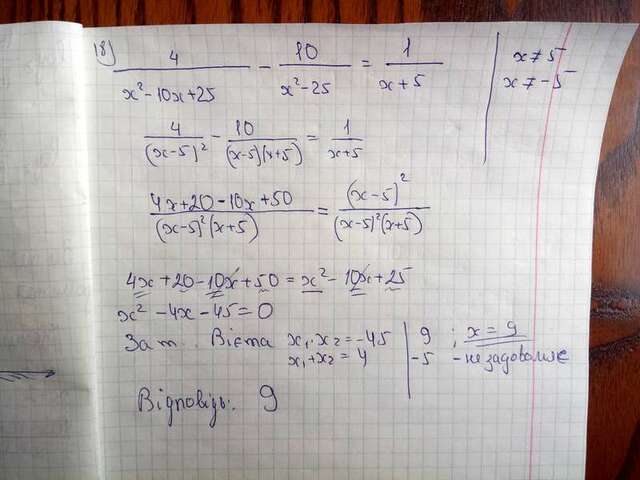 18) 4/(x²-10x+25) - 10/(x²-25) = 1/(x+5) | x≠5
x≠-5
4/(x-5)² - 10/((x-5)(x+5)) = 1/(x+5)
(4x+20-10x+50)/((x-5)²(x+5)) = (x-5)²/((x-5)²(x+5))
4x+20-10x+50=x²-10x+25
x²-4x-45=0
За т. Вієта x₁·x₂=-45 | 9 ; x=9
x₁+x₂=4 | -5 - не задовольняє
Відповідь: 9